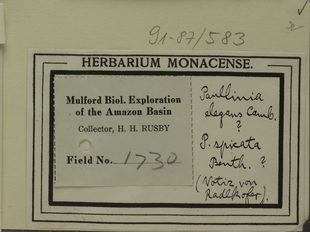 91-87/583
HERBARIUM MONACENSE.
Mulford Biol. Exploration
of the Amazon Basin
Collector, H. H. RUSBY
Field No. 1730
Paullinia
elegans Camb.
?
P. spicata
Benth. ?
(Notiz von
Radlkofer).